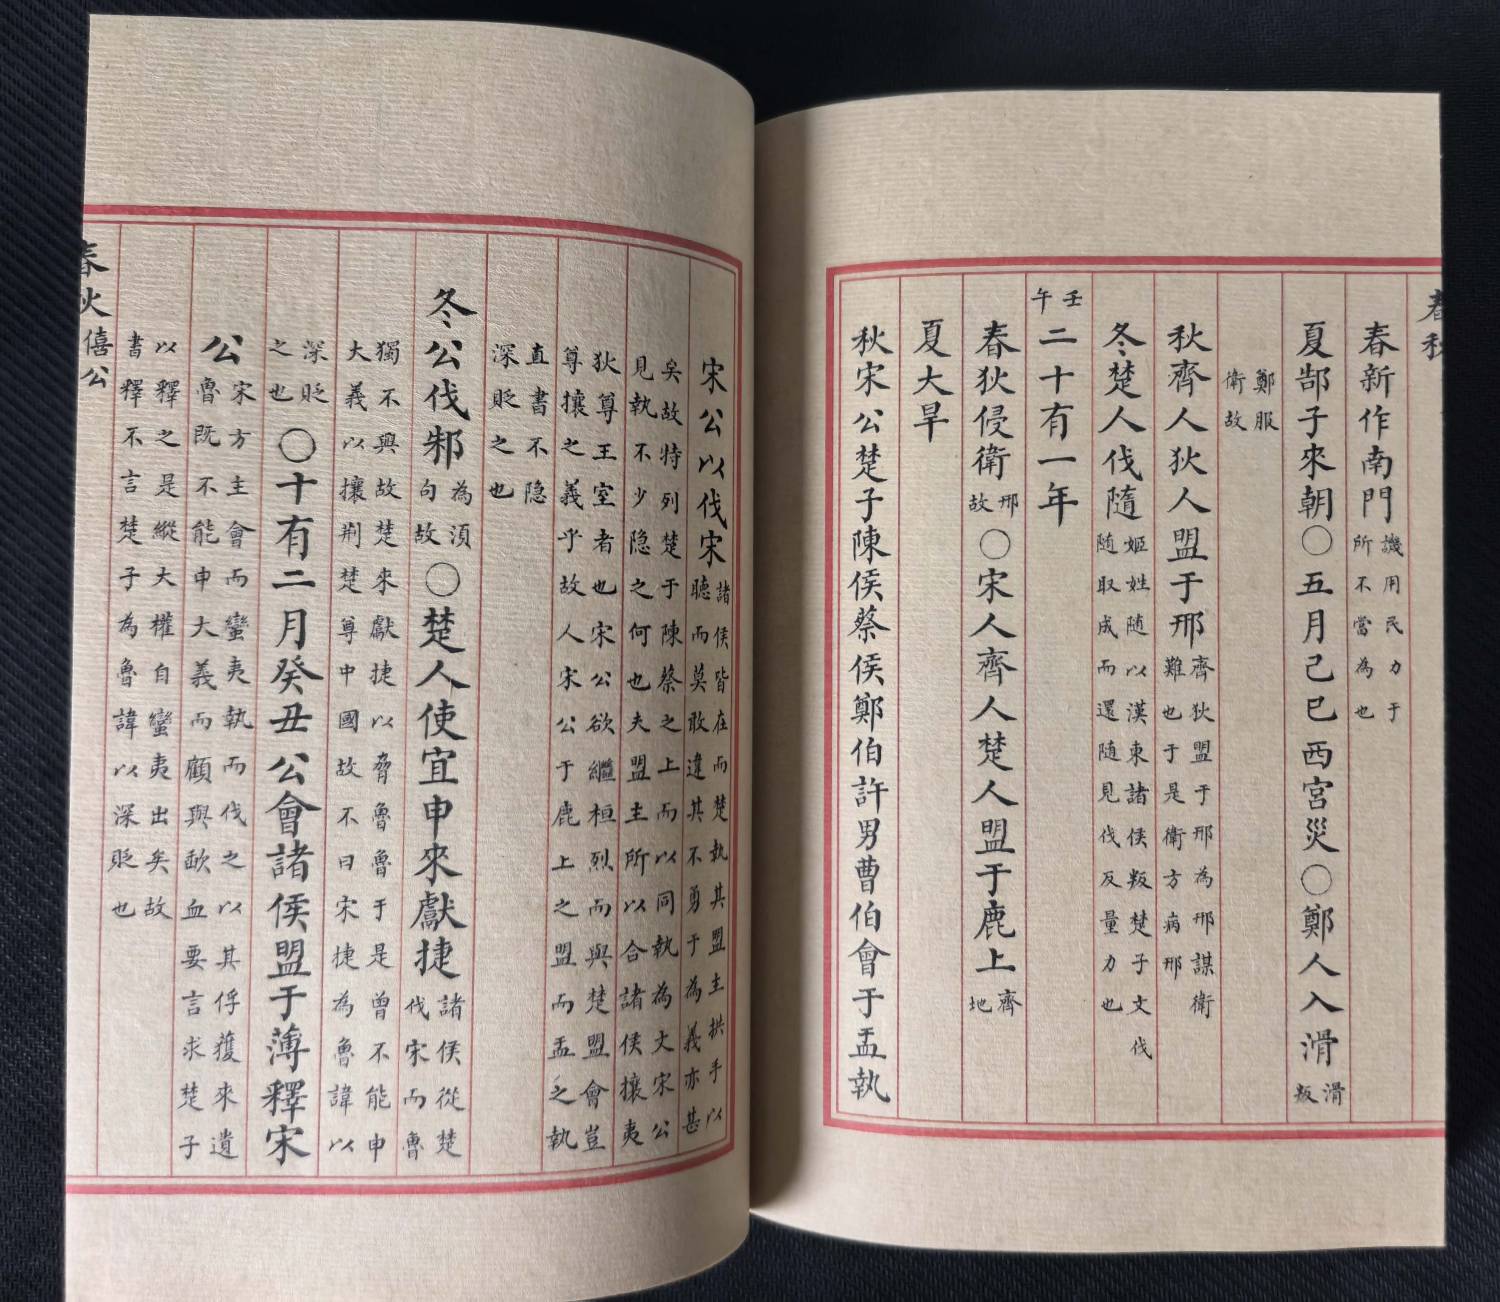 春秋
春新作南門譏用民力于所不當為也
夏郜子來朝○五月己巳西宮災○鄭人入滑滑叛
鄭服衛故
秋齊人狄人盟于邢齊狄盟于邢為邢謀衛難也于是衛方病邢
冬楚人伐隨姬姓随以漢東諸侯叛楚子文伐随取成而還随見伐反量力也
壬午二十有一年
春狄侵衛邢故○宋人齊人楚人盟于鹿上齊地
夏大旱
秋宋公楚子陳侯蔡侯鄭伯許男曹伯會于盂執
宋公以伐宋諸侯皆在而楚執其盟主拱手以聽而莫敢違其不勇于為義亦甚
矣故特列楚于陳蔡之上而以同執為文宋公見執不少隐之何也夫盟主所以合諸侯攘夷
狄尊王室者也宋公欲繼桓烈而與楚盟會豈尊攘之義乎故人宋公于鹿上之盟而盂之執
直書不隐深貶之也
冬公伐邾為須句故○楚人使宜申來獻捷諸侯從楚伐宋而魯
獨不與故楚來獻捷以脅魯魯于是曾不能申大義以攘荆楚尊中國故不曰宋捷為魯諱以
深貶之也○十有二月癸丑公會諸侯盟于薄釋宋
公宋方主會而蠻夷執而伐之以其俘獲來遺魯既不能申大義而顧與歃血要言求楚子
以釋之是縱大權自蠻夷出矣故書釋不言楚子為魯諱以深貶也
春秋僖公